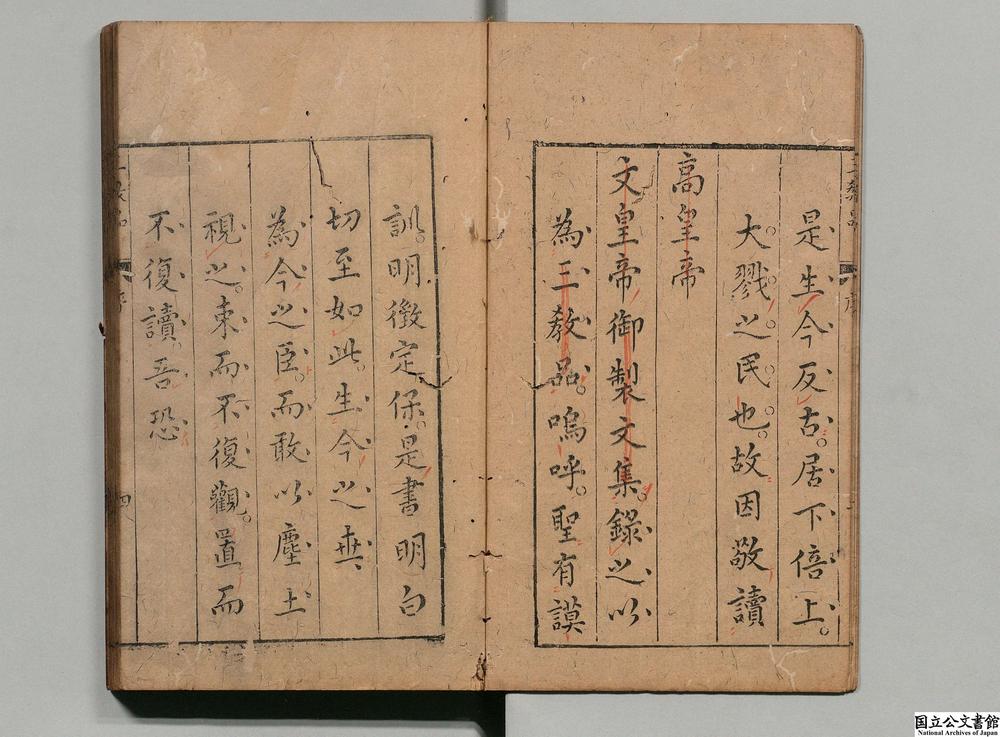 是生今反古。居下倍上。
大戮之民也。故因敬讀
高皇帝
文皇帝御製文集。錄之以
為三教品。嗚呼。聖有謨
訓。明徵定保。是書明白
切至如此。生今之世、
為今之臣。而敢以塵土
視之。束而不復觀。置而
不復讀。吾恐
国立公文書館
National Archives of Japan